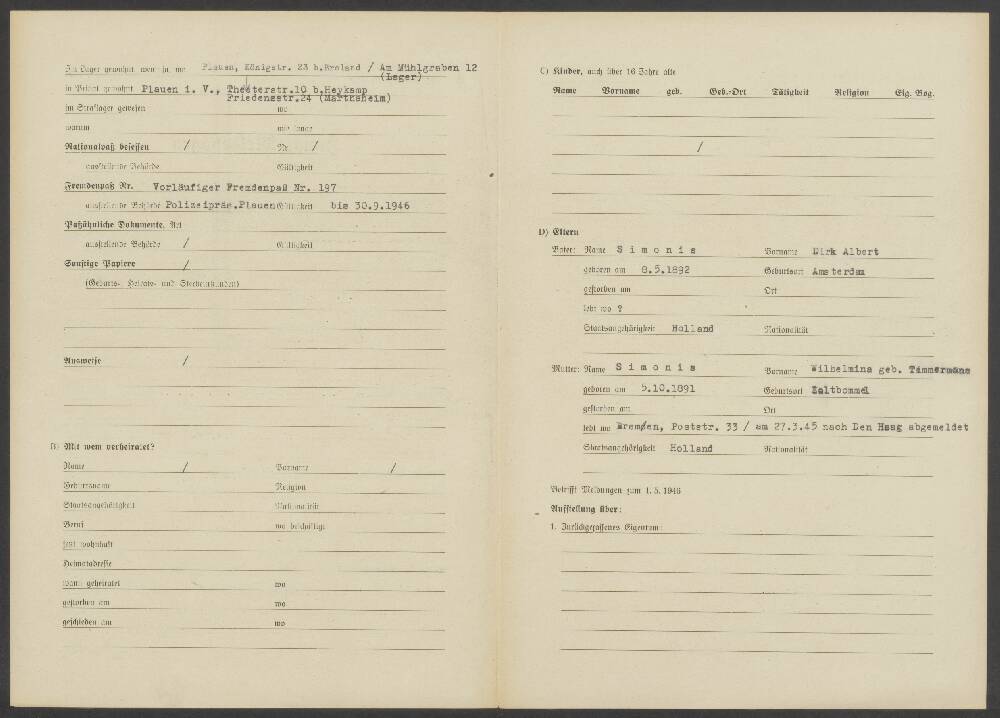 Im Lager gewohnt von bis wo Plauen, Königstr. 23 b.Kroland / Am Mühlgraben 12
(Lager)
in Privat gewohnt Plauen i. V., Theaterstr.10 b.Heykamp
Friedensstr.24 (Marthaheim)
im Straflager gewesen wo
warum wie lange
Nationalpaß besessen / Nr. /
ausstellende Behörde Gültigkeit
Fremdenpaß Nr. Vorläufiger Fremdenpaß Nr. 197
ausstellende Behörde Polizeipräs.Plauen Gültigkeit bis 30.9.1946
Paßähnliche Dokumente. Art
ausstellende Behörde / Gültigkeit
Sonstige Papiere /
(Geburts-, Heirats- und Sterbeurkunden)
Ausweise /
B) Mit wem verheiratet?
Name / Vorname /
Geburtsname Religion
Staatsangehörigkeit Nationalität
Beruf wo beschäftigt
jetzt wohnhaft
Heimatadresse
wann geheiratet wo
gestorben am wo
geschieden am wo
C) Kinder, auch über 16 Jahre alte
Name Vorname geb. Geb.-Ort Tätigkeit Religion Eig. Bog.
/
D) Eltern
Vater: Name S i m o n i s Vorname Dirk Albert
geboren am 8.5.1892 Geburtsort Amsterdam
gestorben am Ort
lebt wo ?
Staatsangehörigkeit Holland Nationalität
Mutter: Name S i m o n i s Vorname Wilhelmina geb. Timmermans
geboren am 5.10.1891 Geburtsort Zaltbommel
gestorben am Ort
lebt wo Bremen, Poststr. 33 / am 27.3.45 nach Den Haag abgemeldet
Staatsangehörigkeit Holland Nationalität
Betrifft Meldungen zum 1. 5. 1946
Aufstellung über:
1. Zurückgelassenes Eigentum: